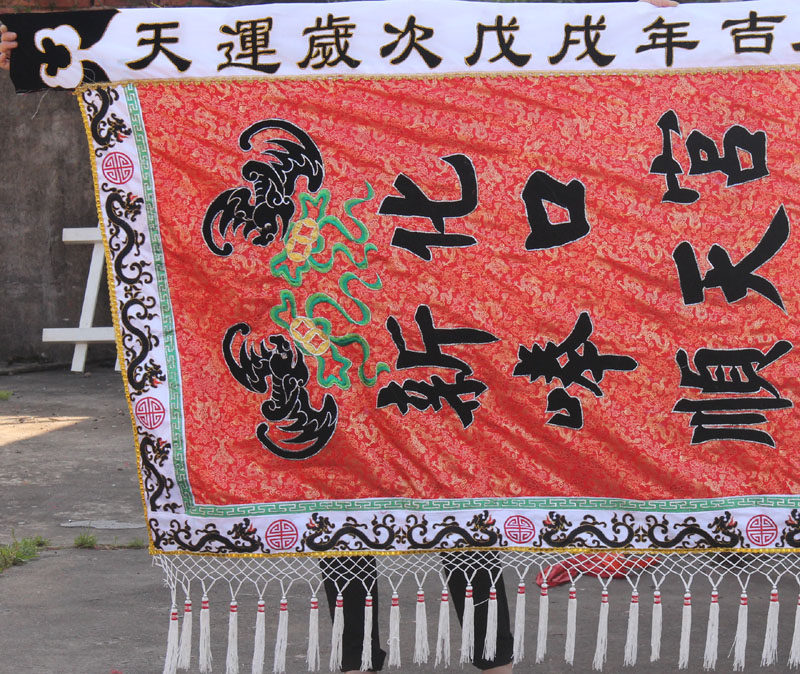 天運歲次戊戌年吉
新化
唪口
順天宮